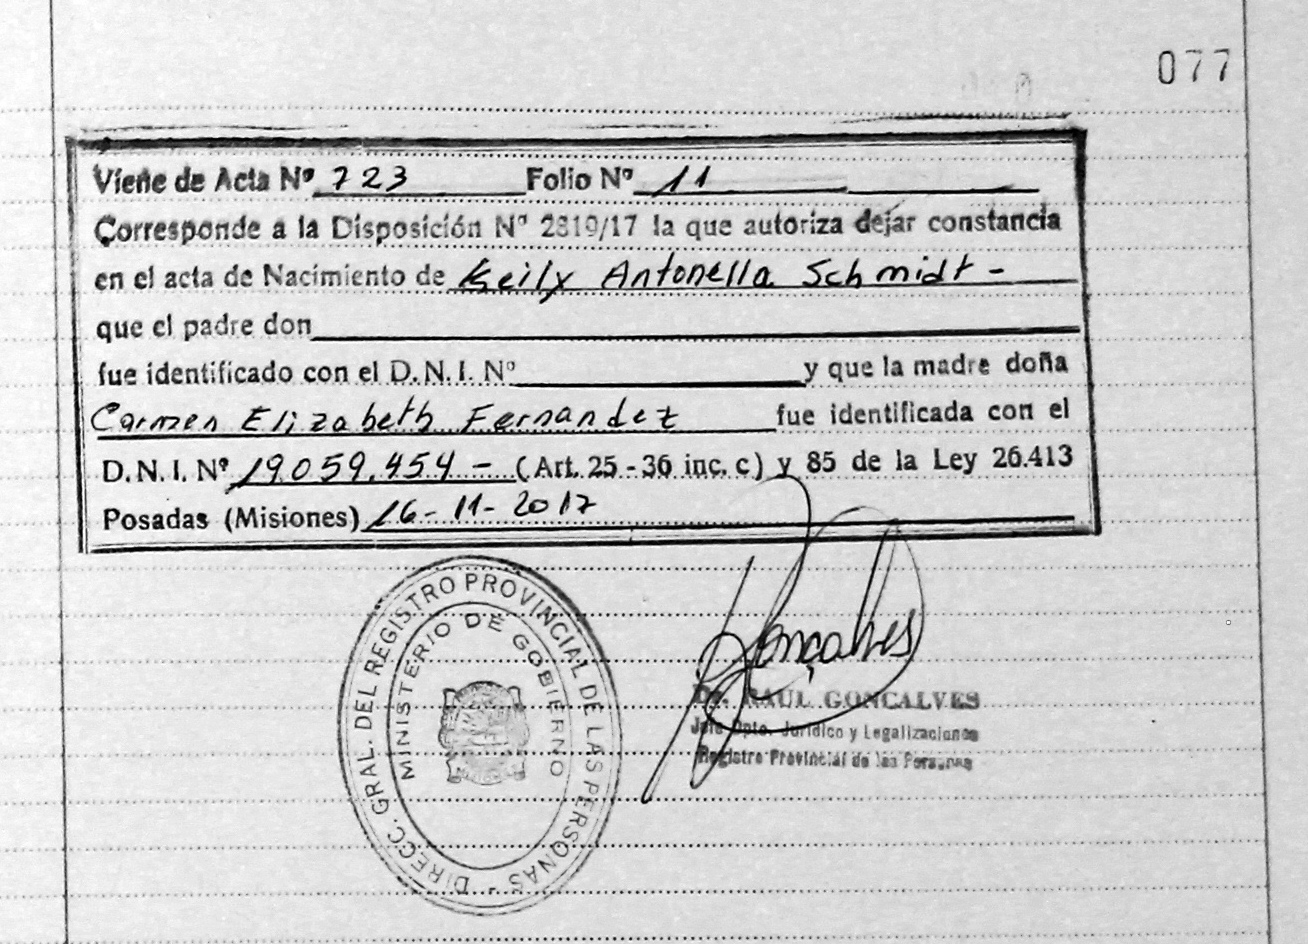 077
Viene de Acta Nº 723 Folio Nº 11
Corresponde a la Disposición Nº 2819/17 la que autoriza dejar constancia
en el acta de Nacimiento de Keily Antonella Schmidt -
que el padre don
fue identificado con el D.N.I. Nº y que la madre doña
Carmen Elizabeth Fernandez fue identificada con el
D.N.I. Nº 19.059.454 - (Art. 25 - 36 inc. c) y 85 de la Ley 26.413
Posadas (Misiones) 16-11-2017
DIRECC. GRAL. DEL REGISTRO PROVINCIAL DE LAS PERSONAS -
MINISTERIO DE GOBIERNO
Gonçalves
Dr. RAUL GONCALVES
Jefe Dpto. Jurídico y Legalizaciones
Registro Provincial de las Personas